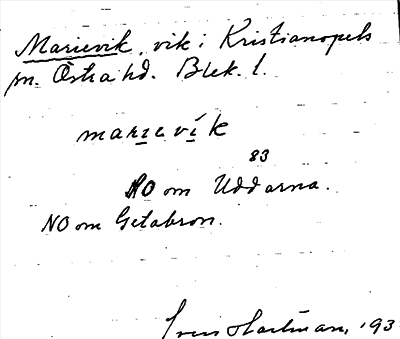 Marievik, vik i Kristianopels
sn. Östra hd. Blek. l.
marıevík
83
NO om Uddarna.
NO om Getabron.
Hartman, 193